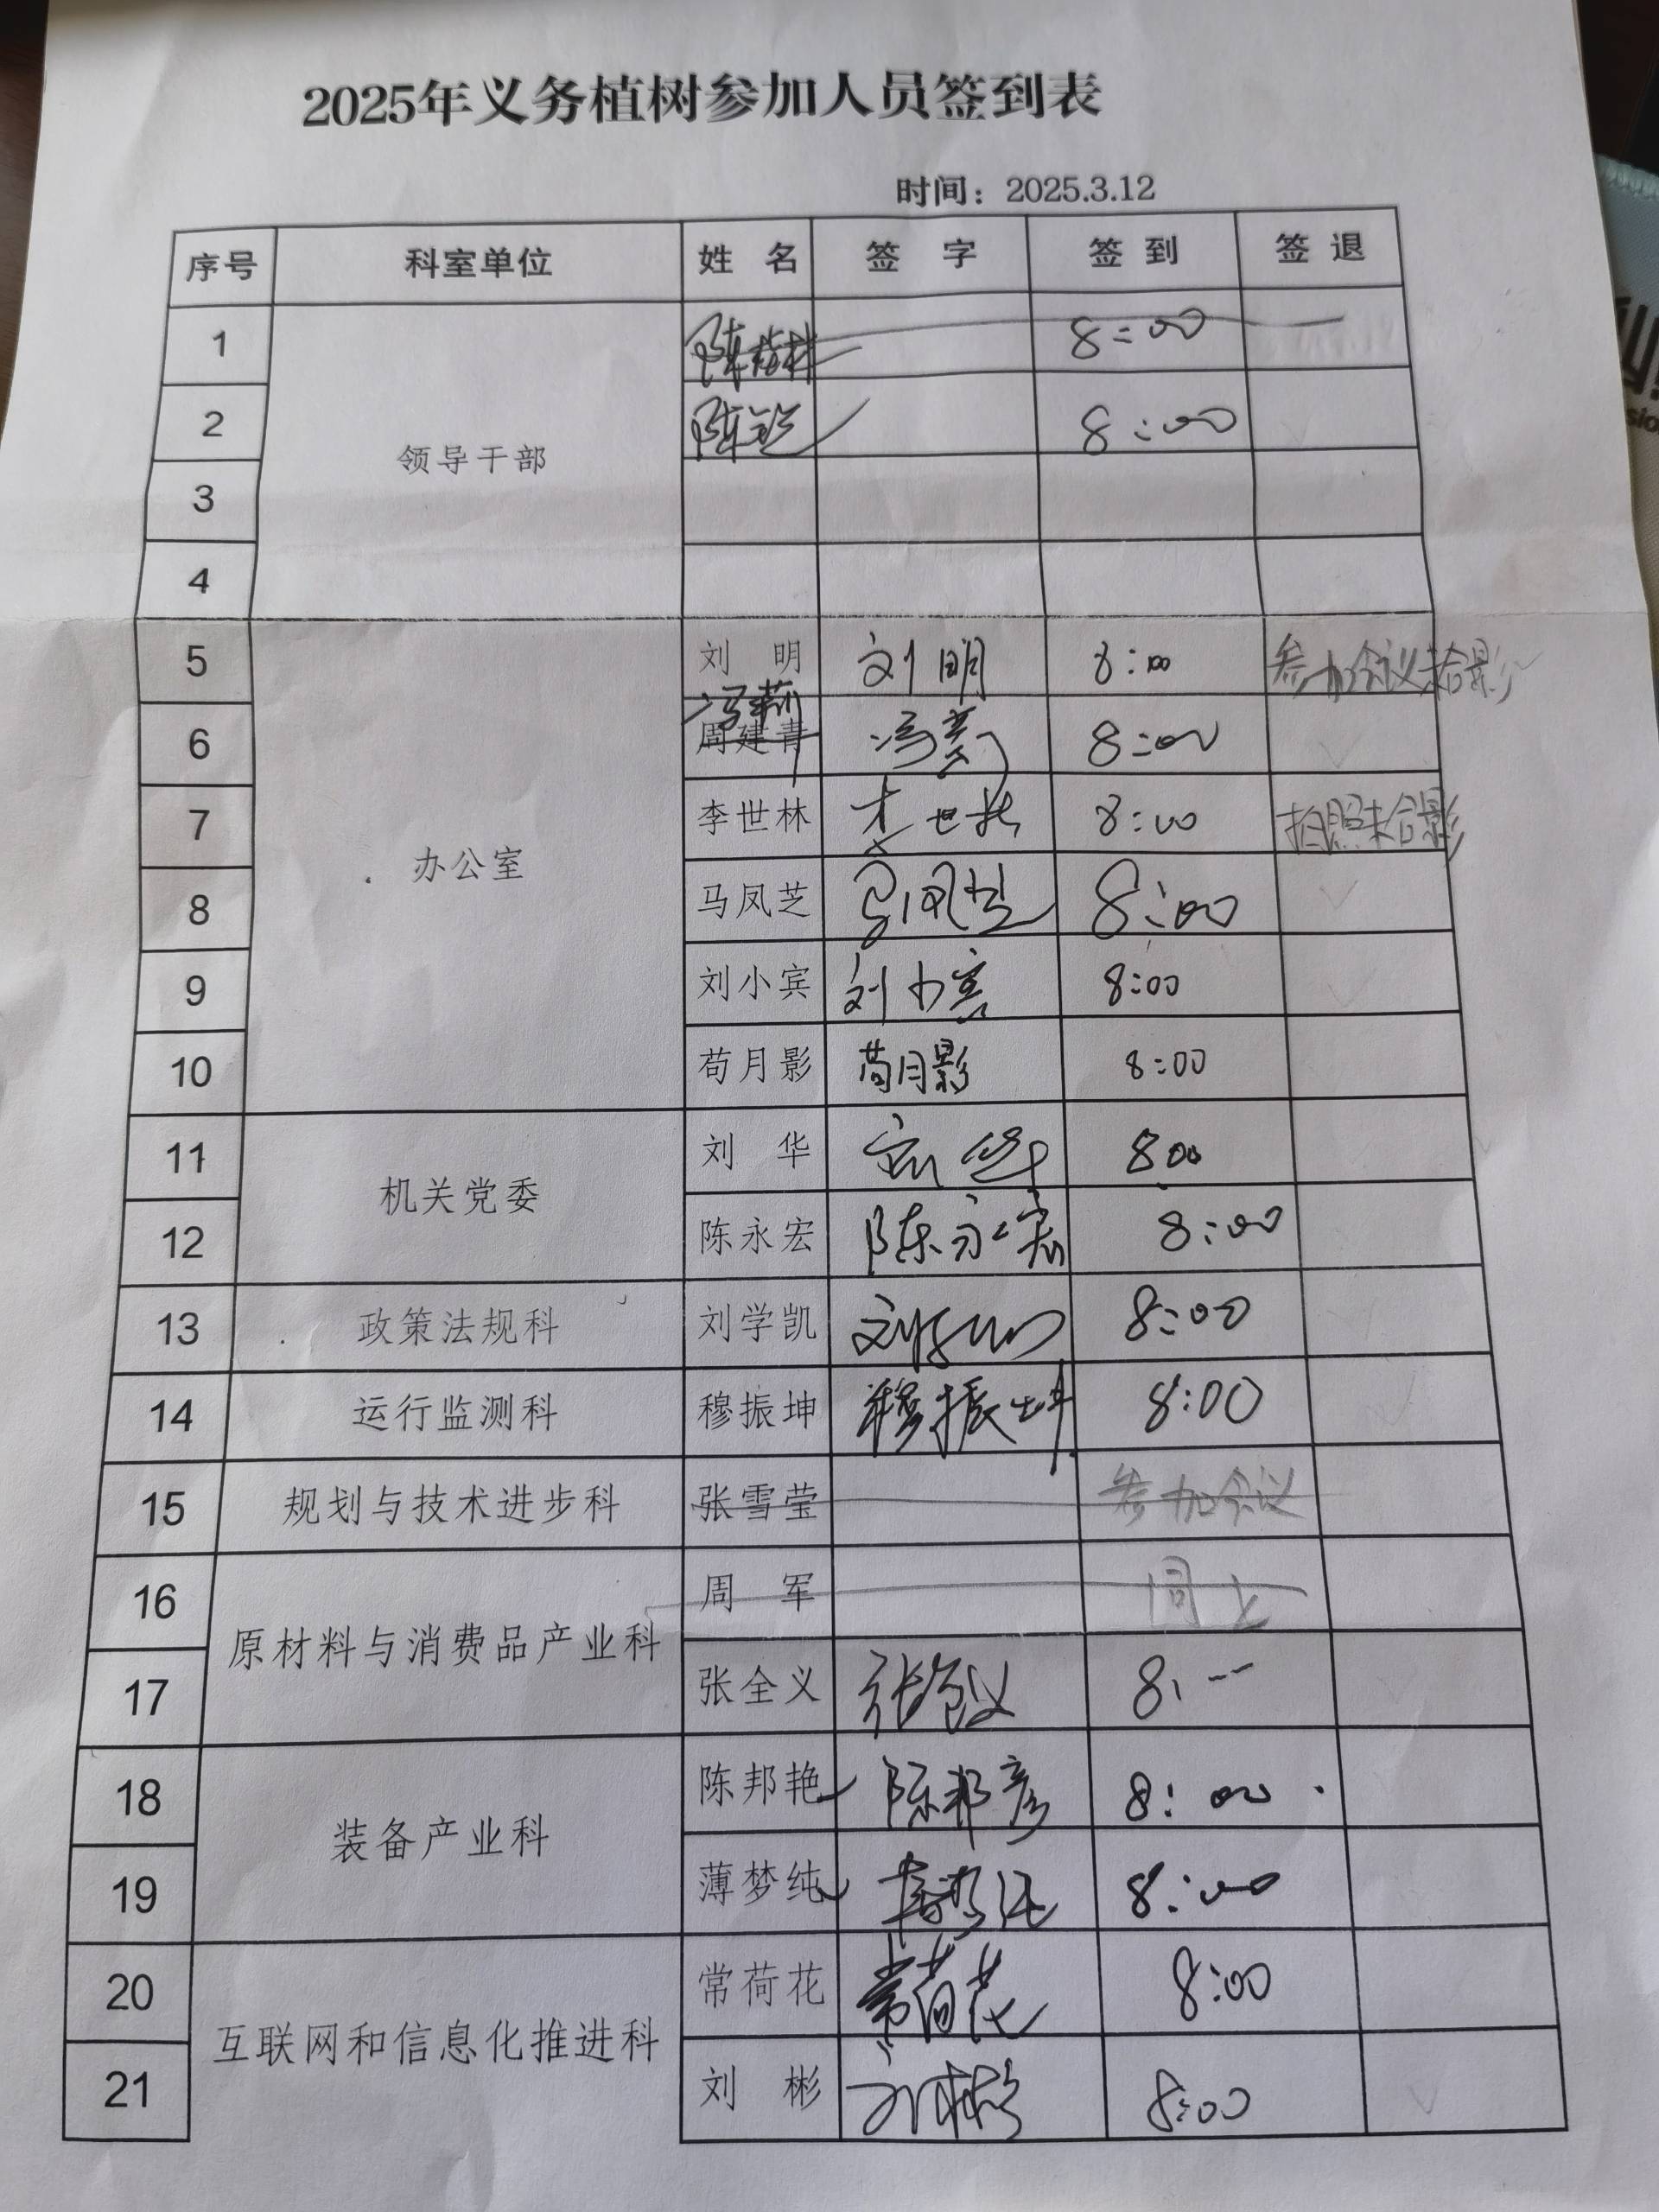 2025年义务植树参加人员签到表
时间：2025.3.12
序号 科室单位 姓 名 签 字 签 到 签 退
1 8:00
领导干部
2 8:00
3
4
办公室
5 刘 明 刘明 8:00 参加会议未合影
冯莉
6 周建青 冯莉 8:00
7 李世林 李世林 8:00 拍照未合影
8 马凤芝 马凤芝 8:00
9 刘小宾 刘小宾 8:00
10 苟月影 苟月影 8:00
机关党委
11 刘 华 刘华 8:00
12 陈永宏 陈永宏 8:00
13 政策法规科 刘学凯 刘学凯 8:00
14 运行监测科 穆振坤 穆振坤 8:00
15 规划与技术进步科 张雪莹 参加会议
原材料与消费品产业科
16 周 军 同上
17 张全义 张全义 8:
装备产业科
18 陈邦艳 陈邦彦 8:00
19 薄梦纯 薄梦纯 8:00
互联网和信息化推进科
20 常荷花 常荷花 8:00
21 刘 彬 刘彬 8:00